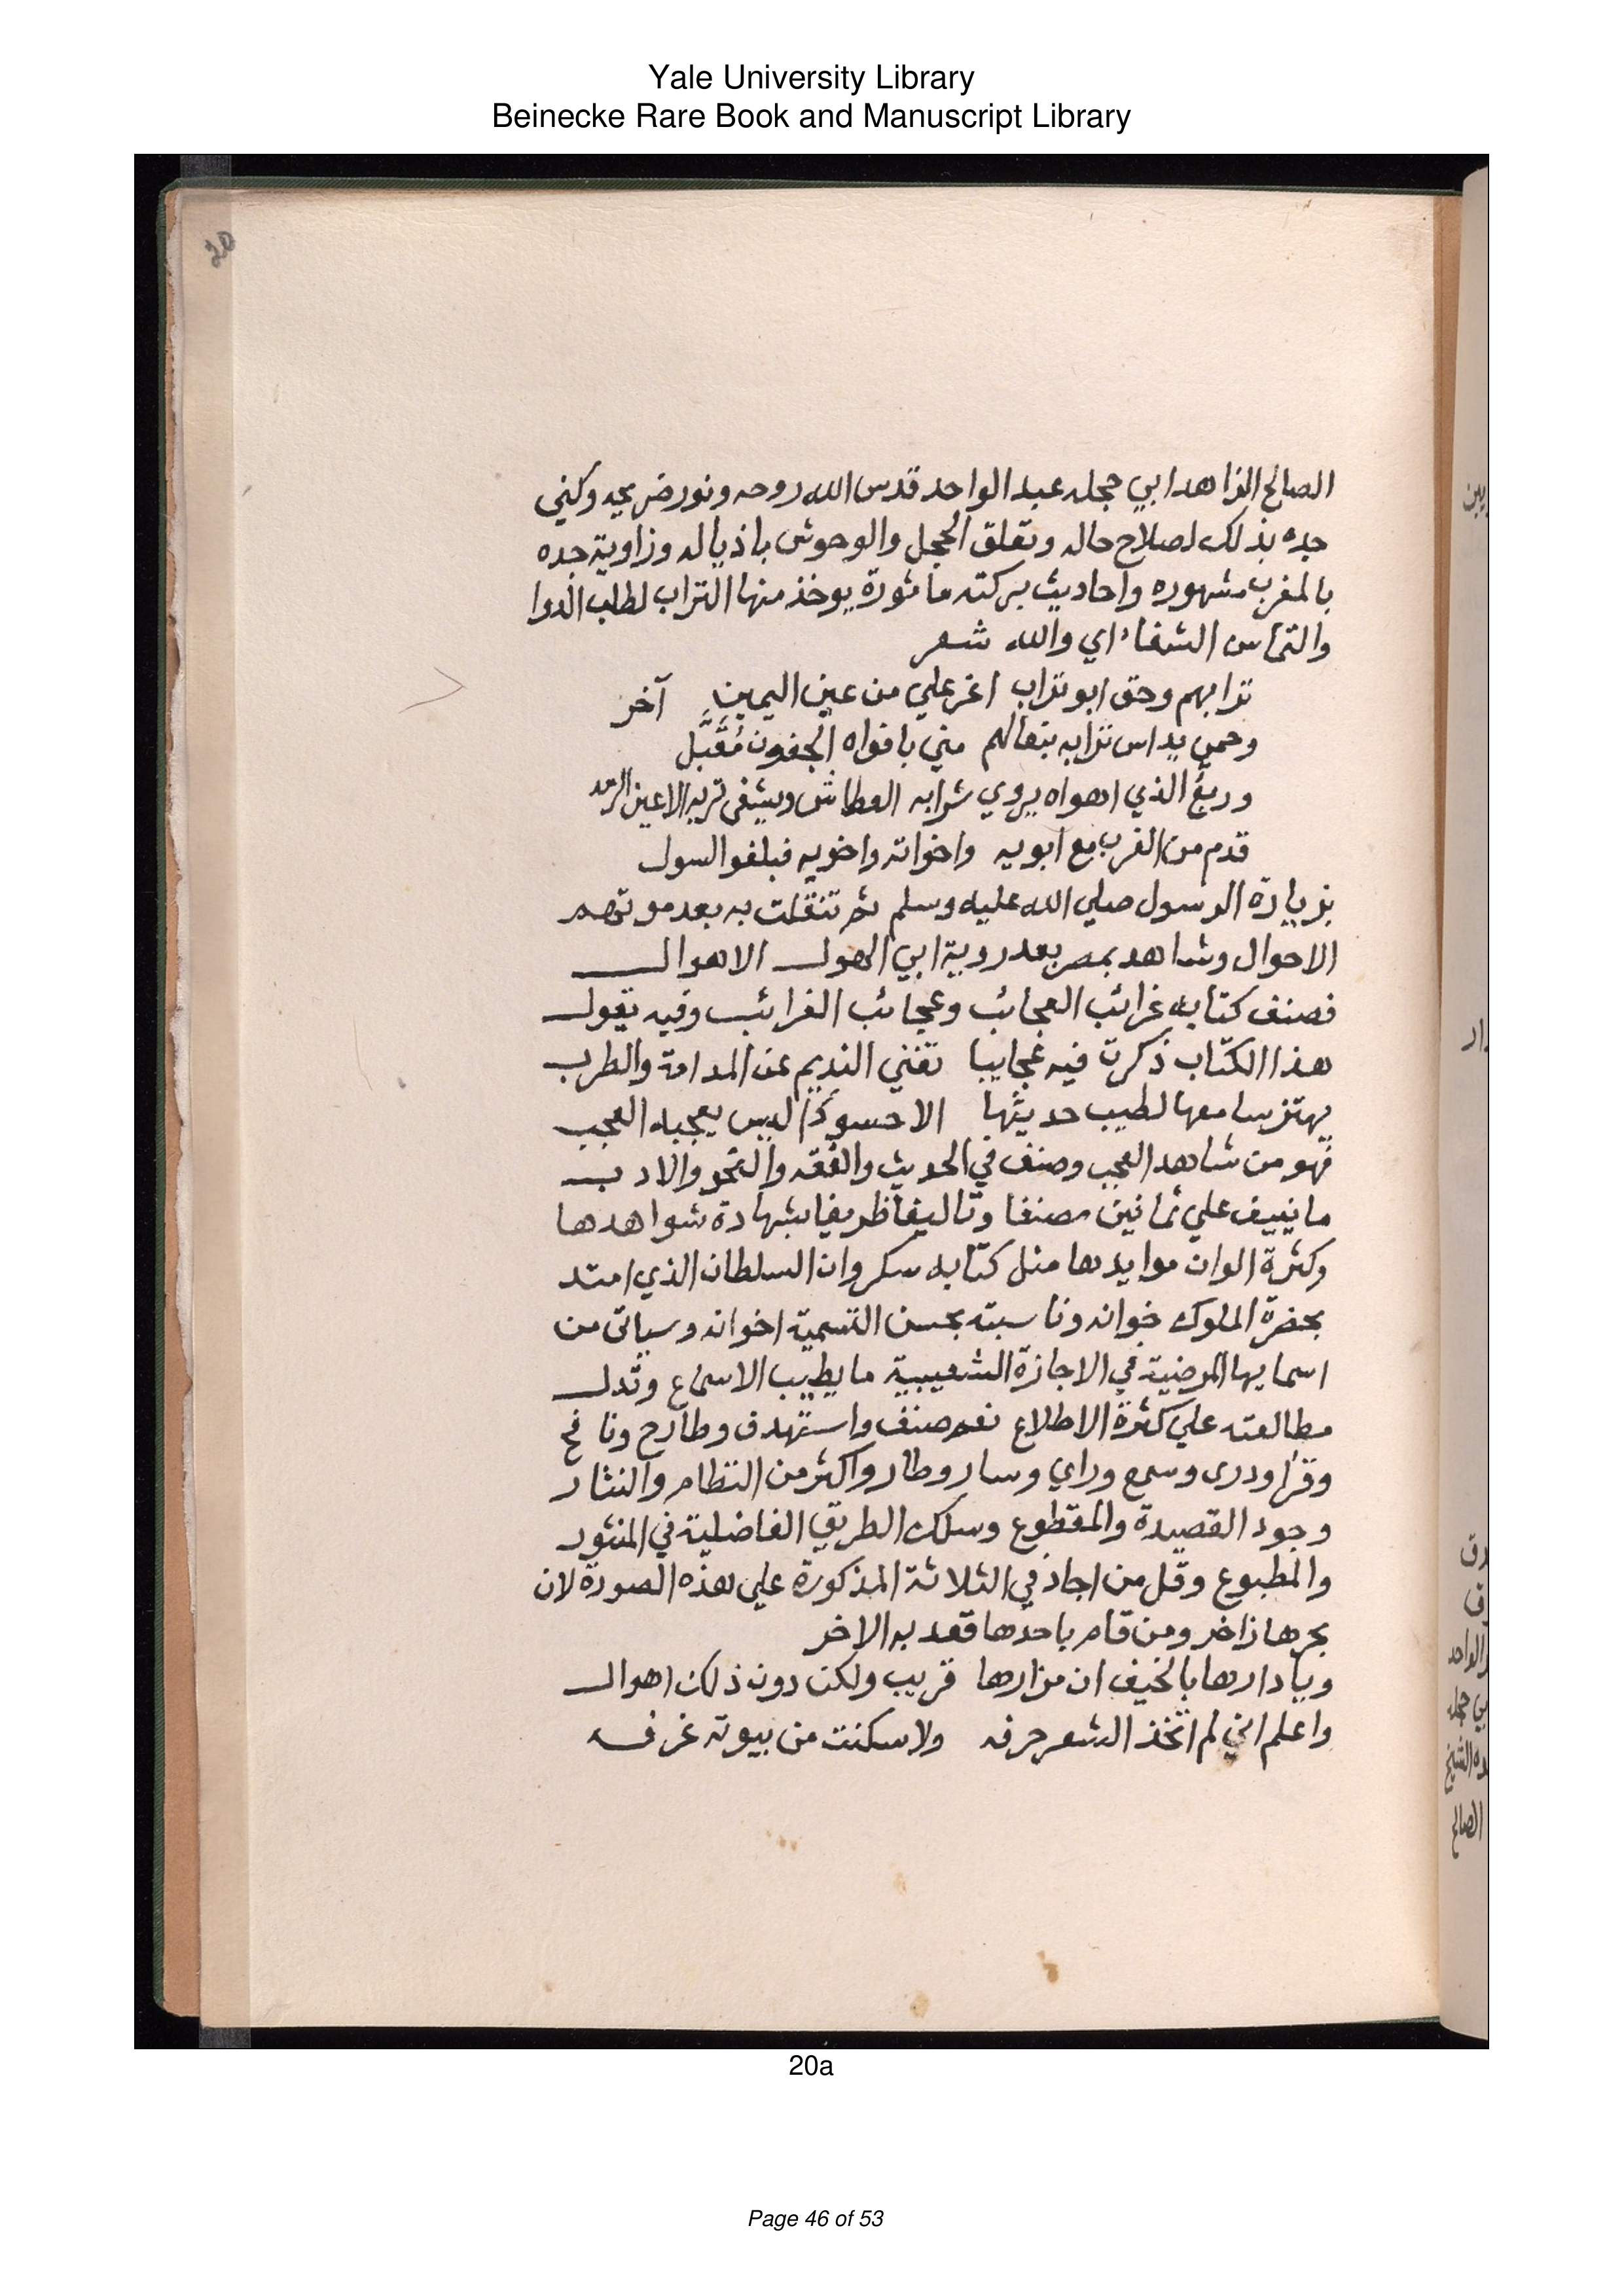 Yale University Library
Beinecke Rare Book and Manuscript Library
20
الصالح الزاهد ابي حجله عبد الواحد قدس الله روحه ونور ضريحه وكني
جده بذلك لصلاح حاله وتعلق الحجل والوحوش باذياله وزاوية جده
بالمغرب مشهوره واحاديث بركته ماثورة يوخذ منها التراب لطلب الدوا
والتماس الشفاء اي والله شعر
ترابهم وحق ابو تراب اعز علي من عين اليمين آخر
وحمي يداس ترابه بنعالهم مني بافواه الجفون مُقَبَّل
وربعُ الذي اهواه يروي شرابه العطاش ويشفى تربه الاعين الرمد
قدم من الغرب مع ابويه واخواته واخويه فبلغوا السول
بزيارة الرسول صلي الله عليه وسلم ثم تنقلت به بعد موتهم
الاحوال وشاهد بمصر بعد روية ابي الهول الاهوال
فصنف كتابه غرائب العجائب وعجائب الغرائب وفيه يقول
هذا الكتاب ذكرت فيه عجايبا تغني النديم عن المدامة والطرب
يهتز سامعها لطيب حديثها الا حسودًا ليس يعجبه العجب
فهو من شاهد العجب وصنف في الحديث والفقه والنحو والادب
ما نييف علي ثمانين مصنفا وتاليفا ظريفا بشهادة شواهدها
وكثرة الوان موايدها مثل كتابه سكروان السلطان الذي امتد
بحضرة الملوك خوانه وناسبته بحسن التسمية اخوانه وسياتى من
اسمايها المرضية في الاجازة الشعيبية ما يطيب الاسماع وتدل
مطالعته علي كثرة الاطلاع نعم صنف واستهدف وطارح ونافح
وقرا ودرى وسمع وراي وسار وطار واكثر من النظام والنثار
وجود القصيدة والمقطوع وسلك الطريق الفاضلية في المنثور
والمطبوع وقل من اجاد في الثلاثة المذكورة علي هذه الصورة لان
بحرها زاخر ومن قام باحدها قعد به الاخر
ويا دارها بالخيف ان مزارها قريب ولكن دون ذلك اهوال
واعلم اني لم اتخذ الشعر حرفه ولا سكنت من بيوته غرفه
20a
Page 46 of 53